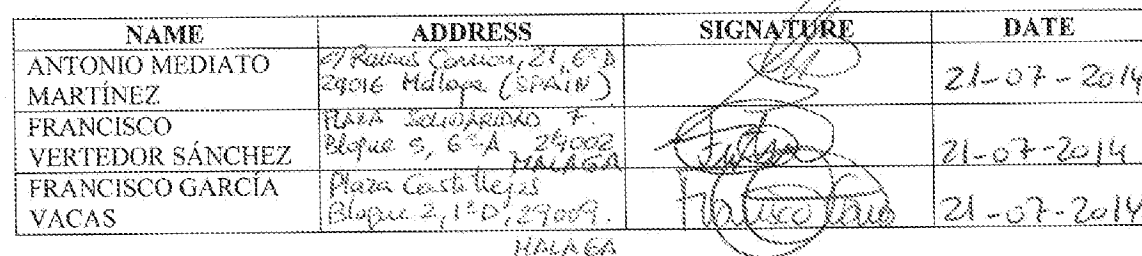 NAME ADDRESS SIGNATURE DATE
ANTONIO MEDIATO MARTÍNEZ C/ Ramos Carrión, 21, 6º D 29016 Málaga (SPAIN) 21-07-2014
FRANCISCO VERTEDOR SÁNCHEZ PLAZA SOLIDARIDAD 7. Bloque 3, 6º A 29002 MALAGA 21-07-2014
FRANCISCO GARCÍA VACAS Plaza Castillejos Bloque 2, 1º D, 29009. MALAGA 21-07-2014